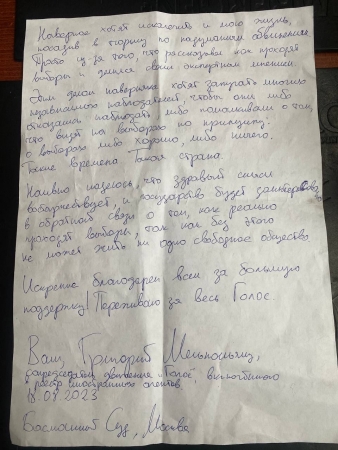 Наверное хотят искалечить и мою жизнь,
посадив в тюрьму по надуманным обвинениям.
Просто из-за того, что рассказывал как проходят
выборы и делился своим экспертным мнением.
Этим делом наверняка хотят запугать многих
независимых наблюдателей, чтобы они либо
отказались наблюдать либо помалкивали о том,
что видят на выборах по принципу:
о выборах либо хорошо, либо ничего.
Такие времена. Такая страна.
Наивно надеюсь, что здравый смысл
восторжествует, и государство будет заинтересовано
в обратной связи о том, как реально
проходят выборы, так как без этого
не может жить ни одно свободное общество.
Искренне благодарен всем за большую
поддержку! Переживаю за весь Голос.
Ваш, Григорий Мельконьянц,
сопредседатель движения "Голос", включённого
в реестр иностранных агентов
18.08.2023
Басманный суд, Москва